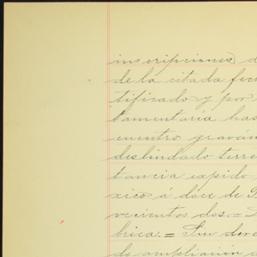 inscripciones, d
de la citada fec
tificado y por
tamentaria has
cuentro graván
deslindado terre
tancia expido
xico á doce de
vecientos dos.=
brica.= Sin dere
de ampliación